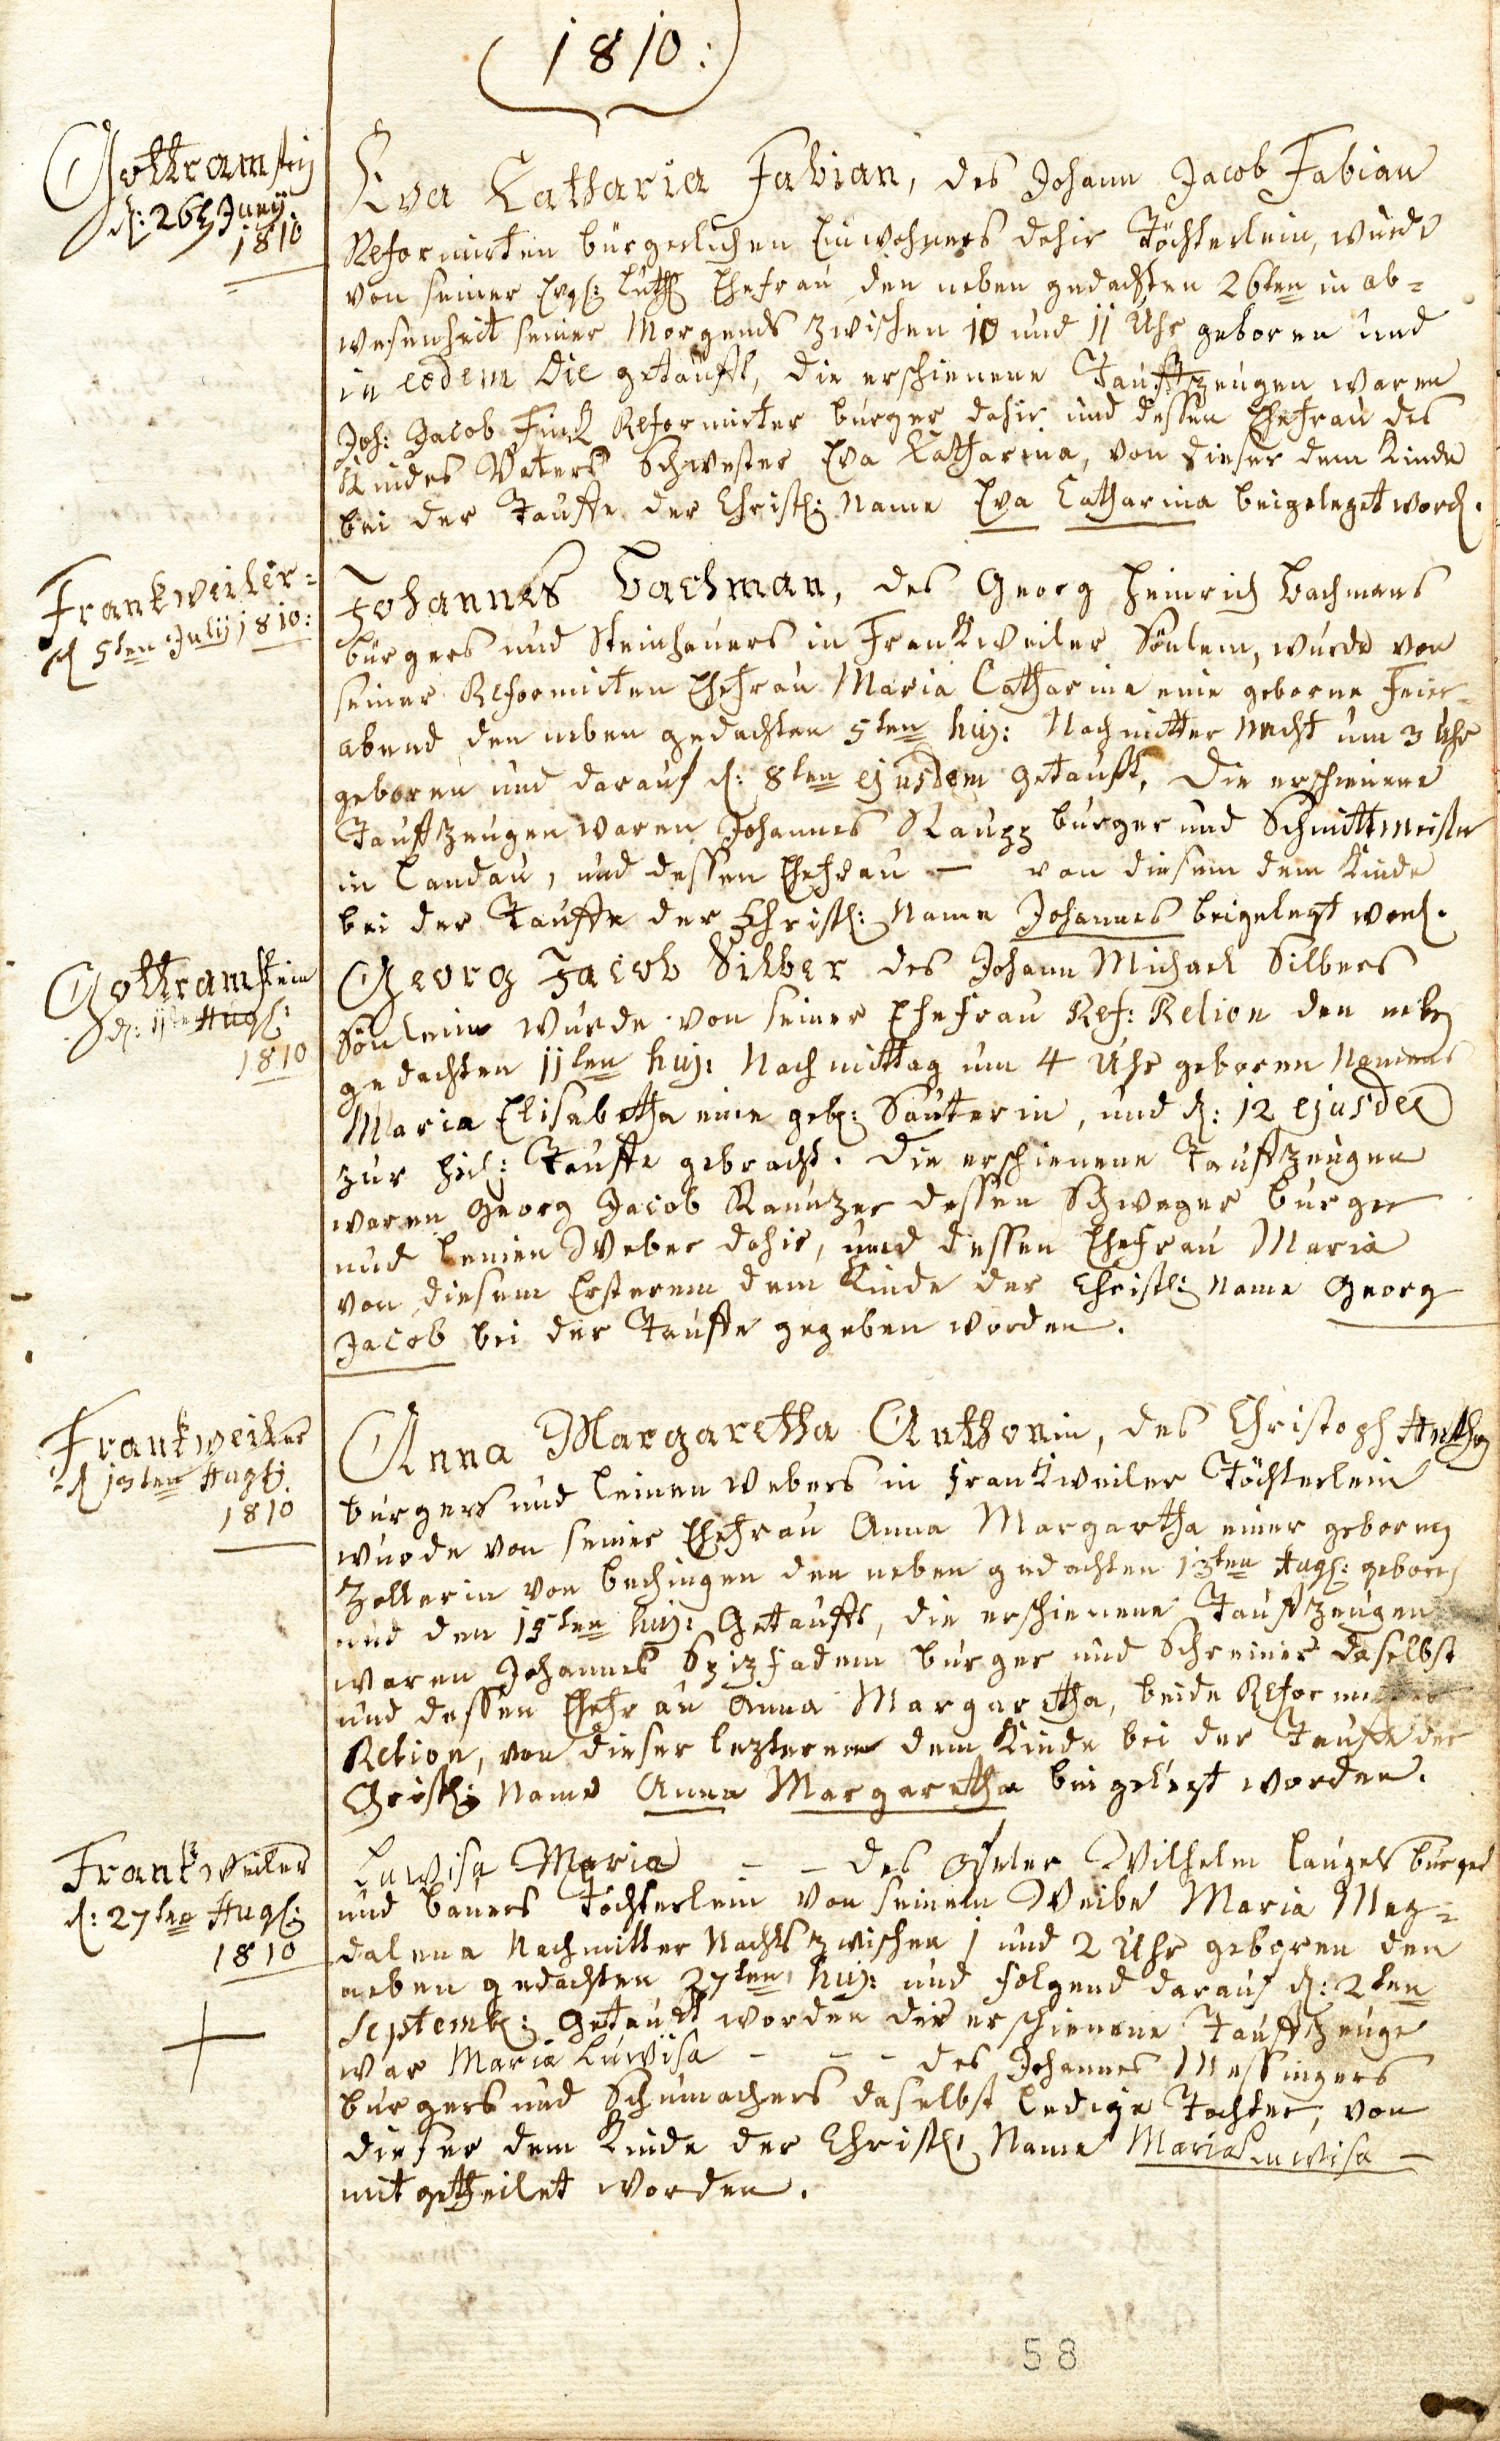 1810:
Gottramstein
d: 26t Juny
1810
Eva Catharia Fabian, des Johann Jacob Fabian
Reformirten bürgerlichen Einwohners dahir Töchterlein, wurde
von seiner Evgl: Luth: Ehefrau den neben gedachten 26ten in ab=
wesenheit seiner Morgends zwischen 10 und 11 Uhr geboren und
in eodem Die getaufft, die erschienene Tauffzeugen waren
Joh: Jacob Finck Reformirter burger dahir und dessen Ehefrau des
Kindes Vaters Schwester Eva Katharina, von dieser dem Kinde
bei der Tauffe der Christl: Name Eva Catharina beigeleget word.
Frankweiler=
d 5ten July 1810:
Johannes Bachman, des Georg Heinrich Bachmans
bürgers und Steinhauers in Franckweiler Sönlein, wurde von
seiner Reformirten Ehefrau Maria Catharina eine geborne Feier=
abend den neben gedachten 5ten huj: Nachmitter Nacht um 3 Uhr
geboren und darauf d: 8ten ejusdem getauft, Die erschienene
Tauffzeugen waren Johannes Raupp burger und Schmittmeister
in Landau, und dessen Ehefrau — von diesem dem Kinde
bei der Tauffe der Christl: Name Johannes beigelegt word.
Gottramstein
d: 11ten Augst:
1810
Georg Jacob Silber des Johann Michael Silbers
Sönlein wurde von seiner Ehefrau Ref: Relion den neben
gedachten 11ten huj: Nachmittag um 4 Uhr geboren Namens
Maria Elisabetha eine geb: Sauterin, und d: 12 ejusdem
zur heil: Tauffe gebracht. Die erschienene Tauffzeugen
waren Georg Jacob dessen Schwager burger
und Leinen Weber dahir, und dessen Ehefrau Maria
von diesem Ersterem dem Kinde der Christl: Name Georg
Jacob bei der Tauffe gegeben worden.
Frankweiler
d 13ten Augst:
1810
Anna Margaretha Anthonin, des Christoph Anthon
burgers und Leinen webers in Franckweiler Töchterlein
wurde von seiner Ehefrau Anna Margartha einer gebornen
Zollerin von bechingen den neben gedachten 13ten Augst: geboren
und den 15ten huj: Getaufft, die erschienene Tauffzeugen
waren Johannes Spizfadem burger und Schreiner daselbst
und dessen Ehefrau Anna Margaretha, beide Reformirter
Relion, von dieser lezteren dem Kinde bei der Tauffe der
Christl: Name Anna Margaretha beigelegt worden.
Frankweiler
d: 27ten Augst:
1810
Luwisa Maria — — des Peter Wilhelm Laugels burgers
und bauers Töchterlein von seinem Weibe Maria Mag=
dalena Nachmitter Nachts zwischen 1 und 2 Uhr geboren den
neben gedachten 27ten huj: und folgend darauf d: 2ten
Septemb: Getauft worden die erschienene Tauffzeuge
war Maria Luwisa — — — des Johannes Messingers
burgers und Schumachers daselbst ledige Tochter, von
dieser dem Kinde der Christl: Name Maria Luwisa —
mit getheilet worden.
58